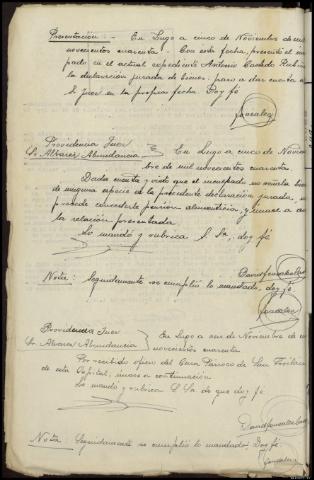 Presentación - En Lugo a cinco de Noviembre de mil
novecientos cuarenta. - Con esta fecha, presentó el incul
pado en el actual expediente Antonio
la declaración jurada de bienes. paso a dar cuenta a
S. Juez en la propia fecha Doy fé
González
Providencia Juez
Sr. Alvarez Abundancia
En Lugo a cinco de Noviem
bre de mil novecientos cuarenta
Dada cuenta y visto que el inculpado no señala bienes
de ninguna especie de la precedente declaración jurada, no
procede concederle pensión alimenticia, y únase a
la relación presentada
Lo mandó y rubrica S. Sª, doy fé
Nota: Seguidamente se cumplió lo mandado, doy fé
González
Providencia Juez
Sr. Alvarez Abundancia
En Lugo a seis de Noviembre de mil
novecientos cuarenta
Por recibido oficio del Cura Párroco de San Froilán
de esta Capital, únase a continuación
Lo mandó y rubrica S. Sª de que doy fé
Nota. Seguidamente se cumplió lo mandado. Doy fé
González